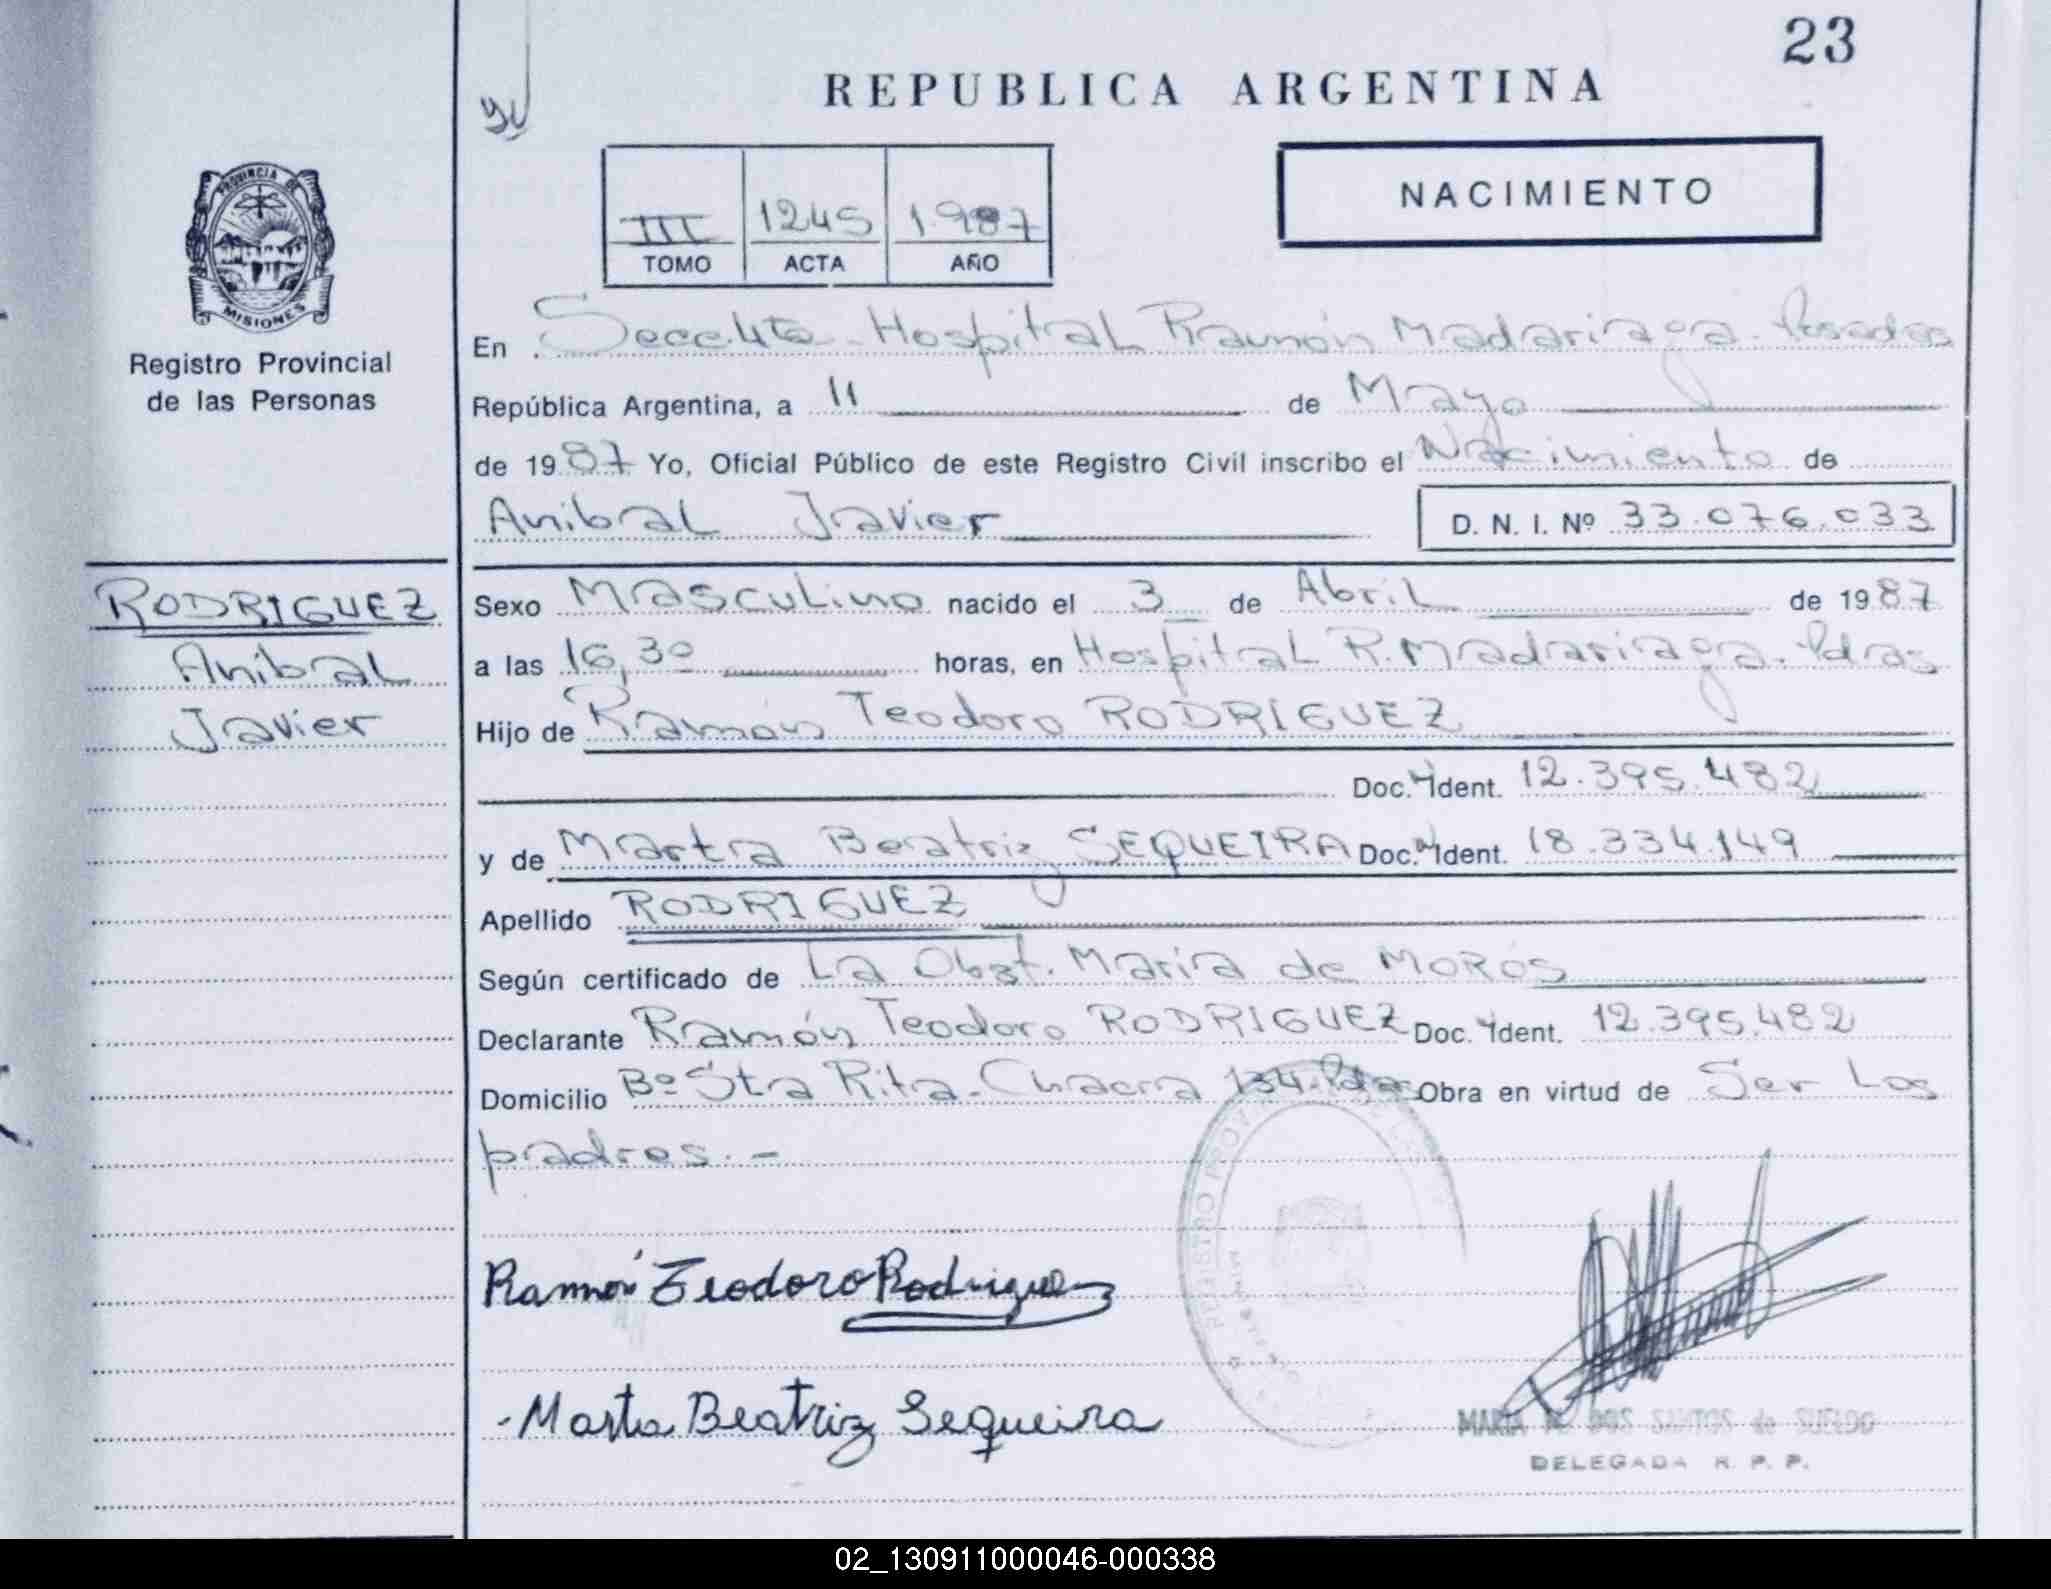 23
REPUBLICA ARGENTINA
NACIMIENTO
III 1245 1.987
TOMO ACTA AÑO
PROVINCIA DE
MISIONES
Registro Provincial
de las Personas
En Hospital Ramón Madariaga. Posadas
República Argentina, a 11 de Mayo
de 1987 Yo, Oficial Público de este Registro Civil inscribo el Nacimiento de
Anibal Javier D. N. I. Nº 33.076.033
RODRIGUEZ
Anibal
Javier
Sexo Masculino nacido el 3 de Abril de 1987
a las 16,30 horas, en Hospital R. Madariaga. Pdas
Hijo de Ramón Teodoro RODRIGUEZ
Doc. Ident. 12.395.482
y de Marta Beatriz SEQUEIRA Doc. Ident. 18.334.149
Apellido RODRIGUEZ
Según certificado de La Obst. Maria de MOROS
Declarante Ramón Teodoro RODRIGUEZ Doc. Ident. 12.395.482
Domicilio Bº Sta Rita. Chacra 134. Pdas Obra en virtud de Ser Los
padres.-
Ramón Teodoro Rodriguez
Marta Beatriz Sequeira
REGISTRO PROVINCIAL
MARIA DOS SANTOS de SUELDO
DELEGADA R. P. P.
02_130911000046-000338